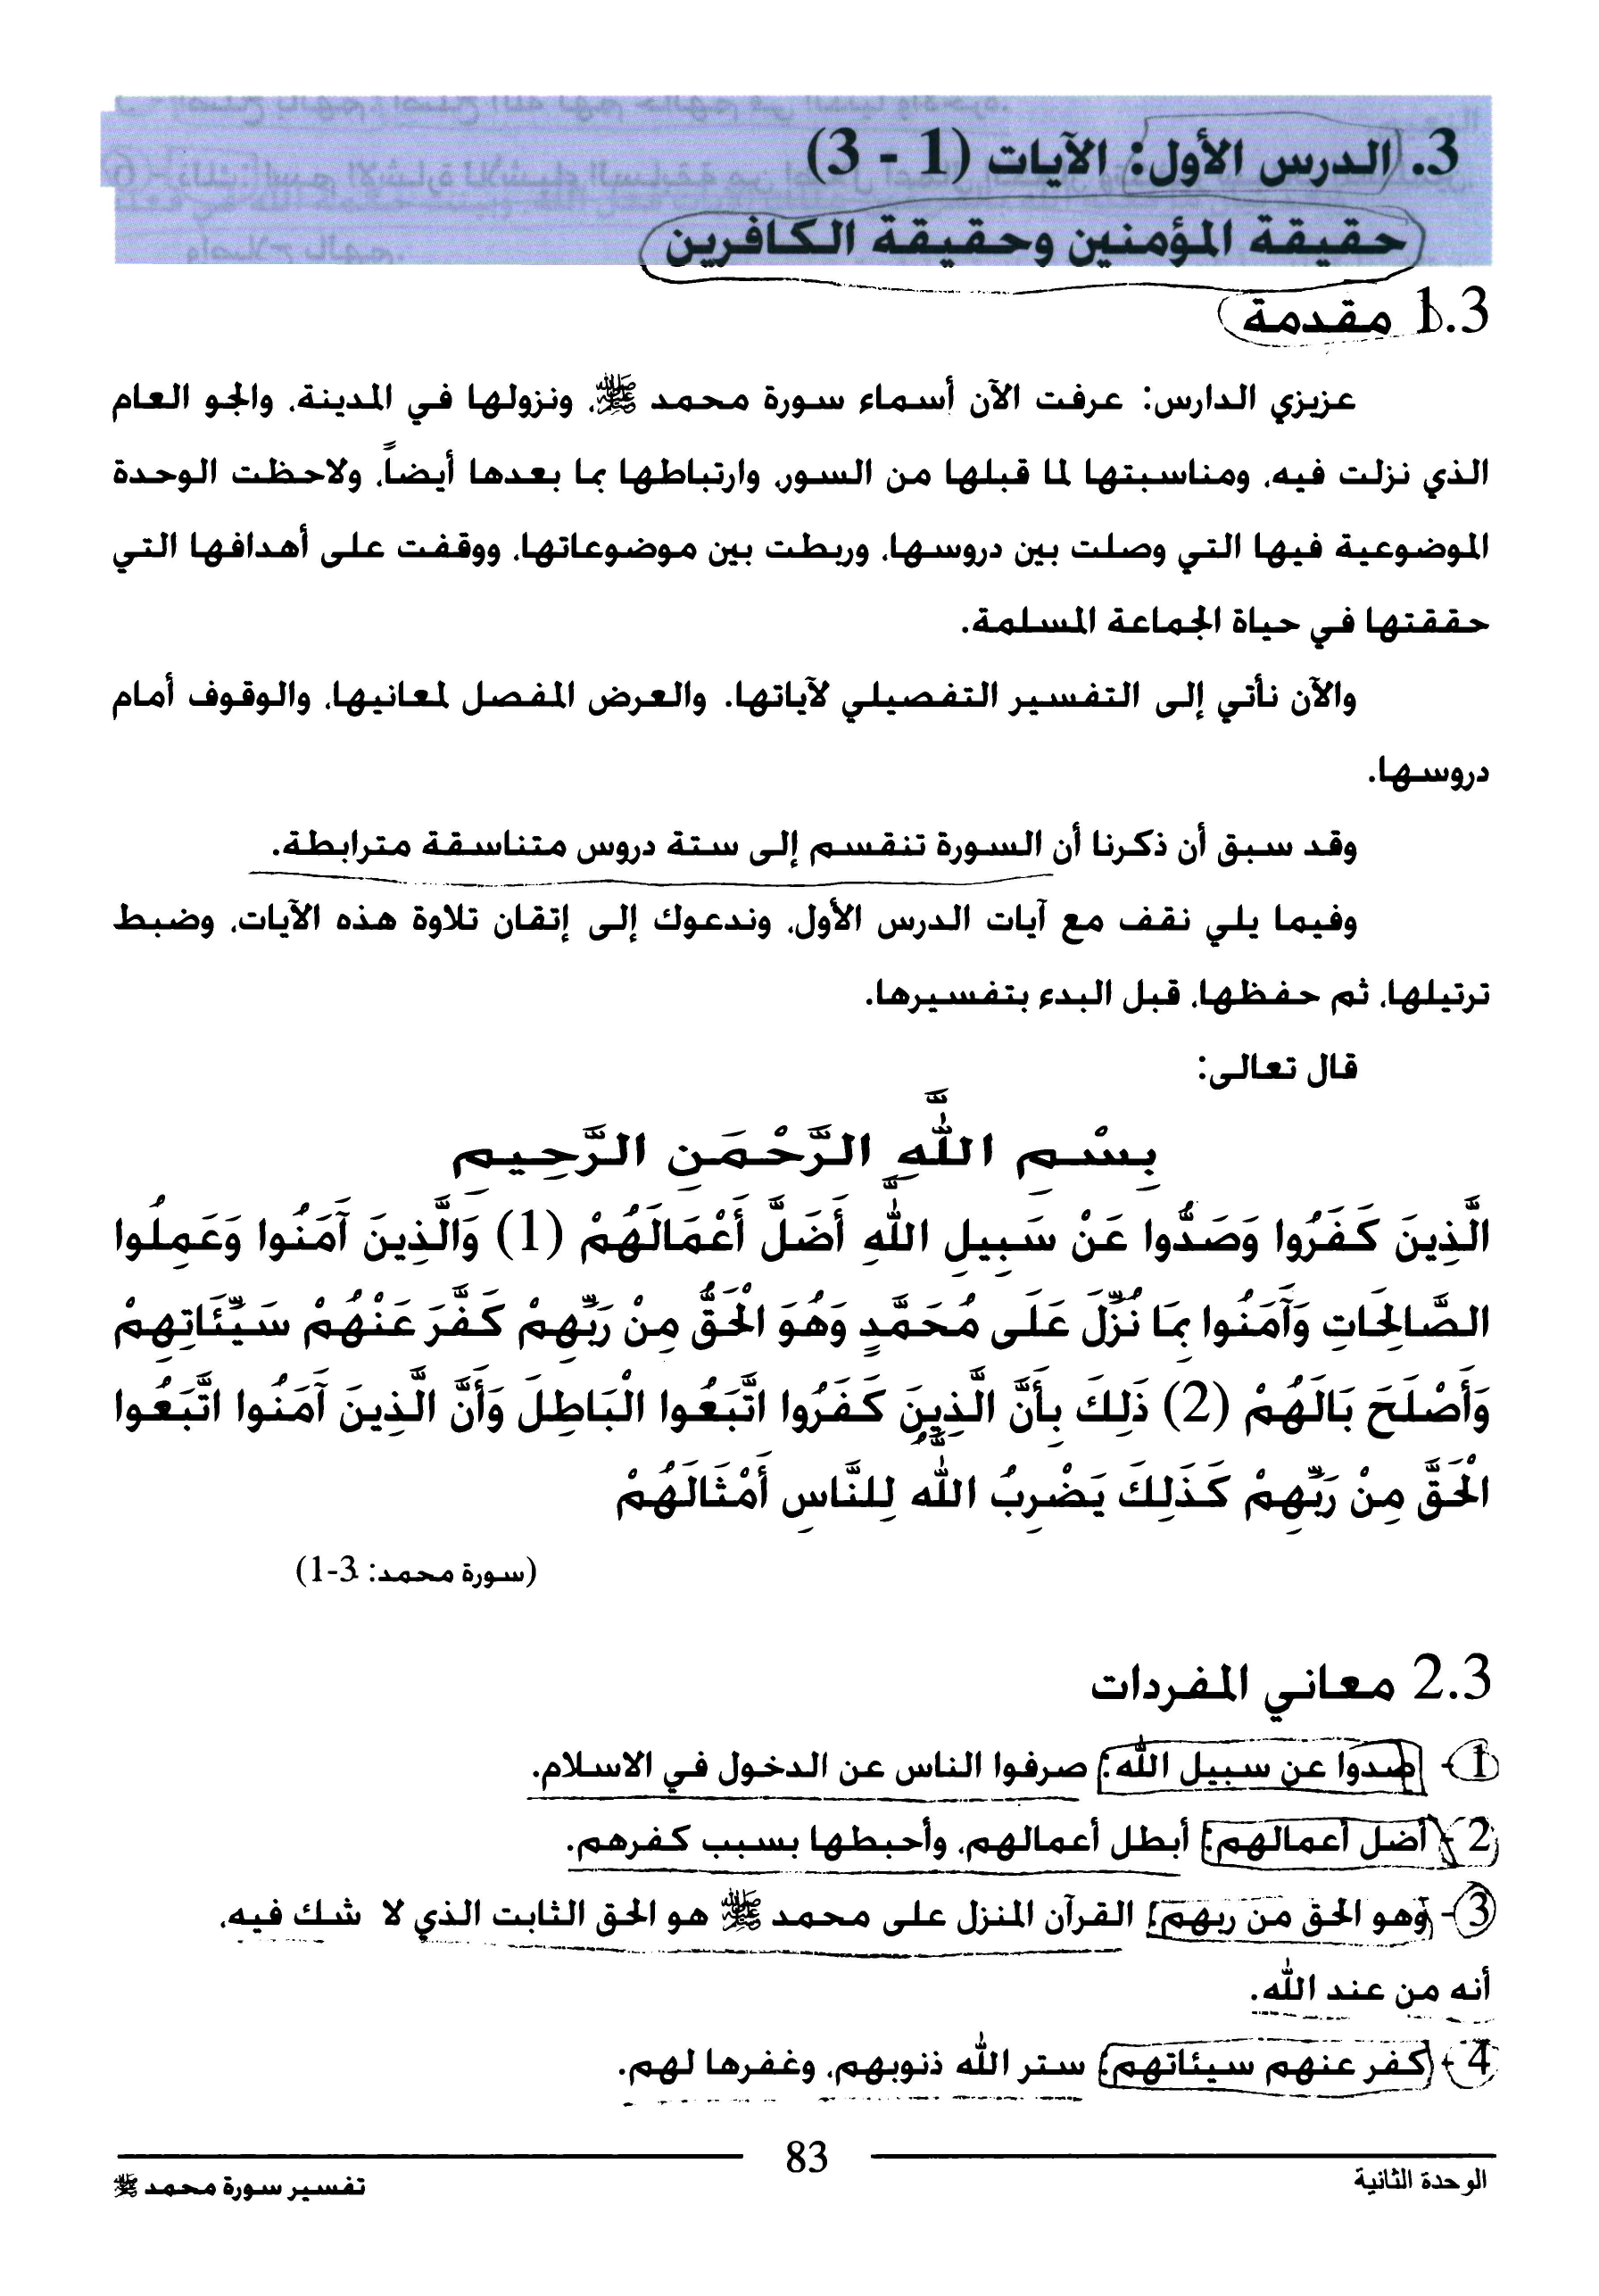 3. الدرس الأول: الآيات (1 - 3)
حقيقة المؤمنين وحقيقة الكافرين
1.3 مقدمة
عزيزي الدارس: عرفت الآن أسماء سورة محمد ﷺ، ونزولها في المدينة، والجو العام
الذي نزلت فيه، ومناسبتها لما قبلها من السور، وارتباطها بما بعدها أيضاً، ولاحظت الوحدة
الموضوعية فيها التي وصلت بين دروسها، وربطت بين موضوعاتها، ووقفت على أهدافها التي
حققتها في حياة الجماعة المسلمة.
والآن نأتي إلى التفسير التفصيلي لآياتها. والعرض المفصل لمعانيها، والوقوف أمام
دروسها.
وقد سبق أن ذكرنا أن السورة تنقسم إلى ستة دروس متناسقة مترابطة.
وفيما يلي نقف مع آيات الدرس الأول، وندعوك إلى إتقان تلاوة هذه الآيات، وضبط
ترتيلها، ثم حفظها، قبل البدء بتفسيرها.
قال تعالى:
بِسْمِ اللَّهِ الرَّحْمَنِ الرَّحِيمِ
الَّذِينَ كَفَرُوا وَصَدُّوا عَنْ سَبِيلِ اللَّهِ أَضَلَّ أَعْمَالَهُمْ (1) وَالَّذِينَ آمَنُوا وَعَمِلُوا
الصَّالِحَاتِ وَآمَنُوا بِمَا نُزِّلَ عَلَى مُحَمَّدٍ وَهُوَ الْحَقُّ مِنْ رَبِّهِمْ كَفَّرَ عَنْهُمْ سَيِّئَاتِهِمْ
وَأَصْلَحَ بَالَهُمْ (2) ذَلِكَ بِأَنَّ الَّذِينَ كَفَرُوا اتَّبَعُوا الْبَاطِلَ وَأَنَّ الَّذِينَ آمَنُوا اتَّبَعُوا
الْحَقَّ مِنْ رَبِّهِمْ كَذَلِكَ يَضْرِبُ اللَّهُ لِلنَّاسِ أَمْثَالَهُمْ
(سورة محمد: 3-1)
2.3 معاني المفردات
1- صدوا عن سبيل الله: صرفوا الناس عن الدخول في الاسلام.
2- أضل أعمالهم: أبطل أعمالهم، وأحبطها بسبب كفرهم.
3- وهو الحق من ربهم: القرآن المنزل على محمد ﷺ هو الحق الثابت الذي لا شك فيه،
أنه من عند الله.
4- كفر عنهم سيئاتهم: ستر الله ذنوبهم، وغفرها لهم.
83
الوحدة الثانية
تفسير سورة محمد ﷺ